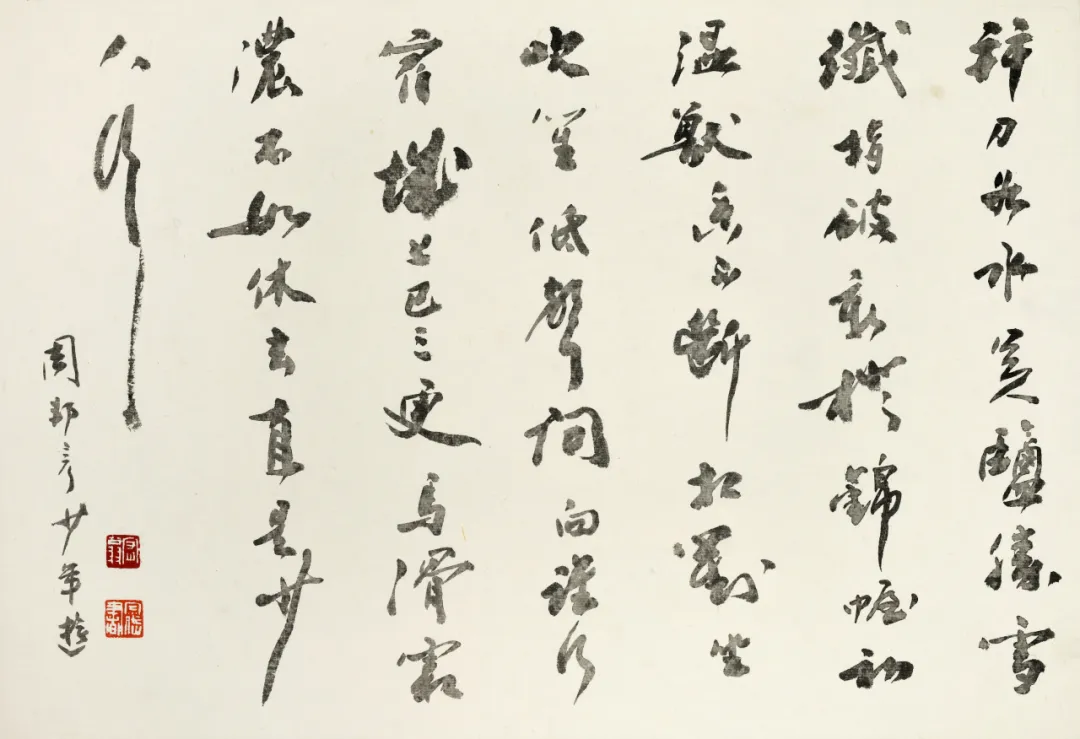 并刀如水吳鹽勝雪
纖指破新橙錦幄初
溫獸香不斷相對坐
吹笙低聲問向誰行
宿城上已三更馬滑霜
濃不如休去直是少
人行
周邦彥少年遊